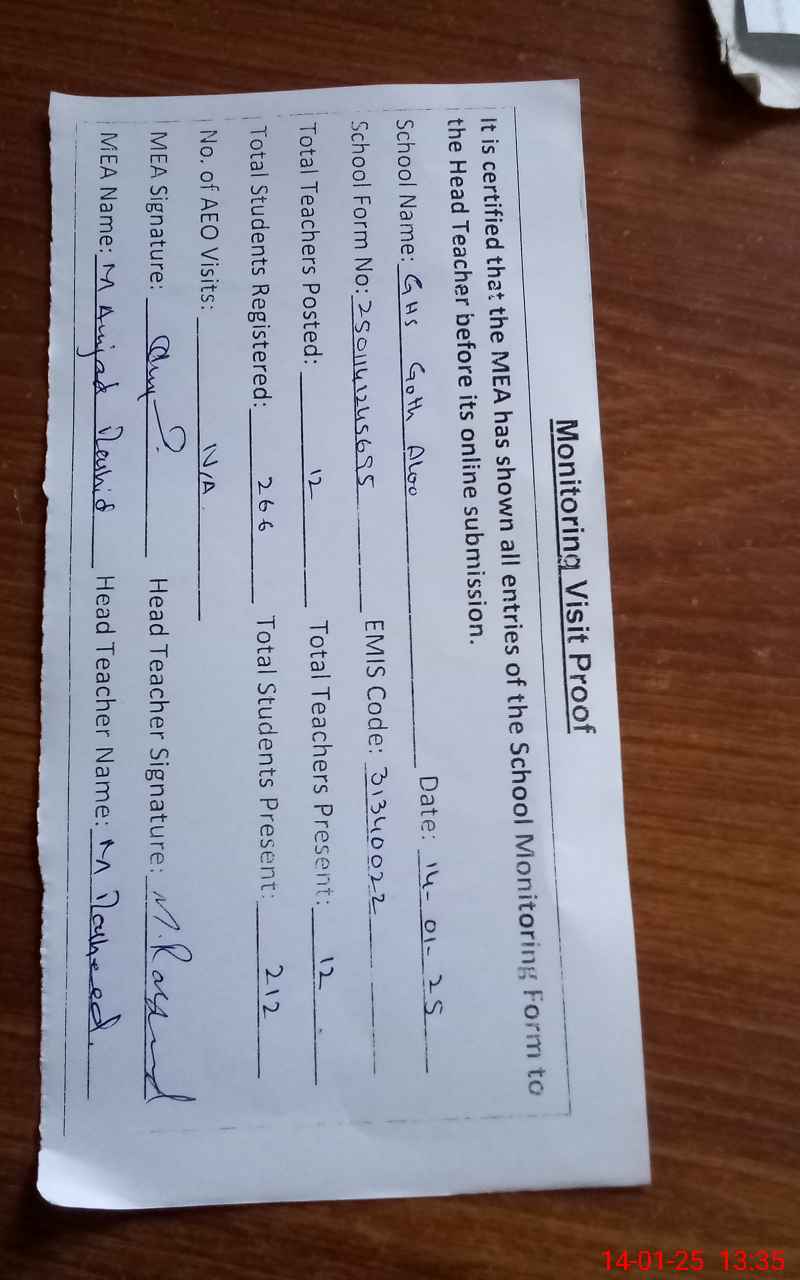 Monitoring Visit Proof
It is certified that the MEA has shown all entries of the School Monitoring Form to
the Head Teacher before its online submission.
School Name: GHS Goth Aloo Date: 14-01-25
School Form No: 250114124S695 EMIS Code: 31340022
Total Teachers Posted: 12 Total Teachers Present: 12
Total Students Registered: 266 Total Students Present: 212
No. of AEO Visits: N/A
MEA Signature: Head Teacher Signature: M. Rasheed
MEA Name: M Amjad Rashid Head Teacher Name: M Rasheed.
14-01-25 13:35